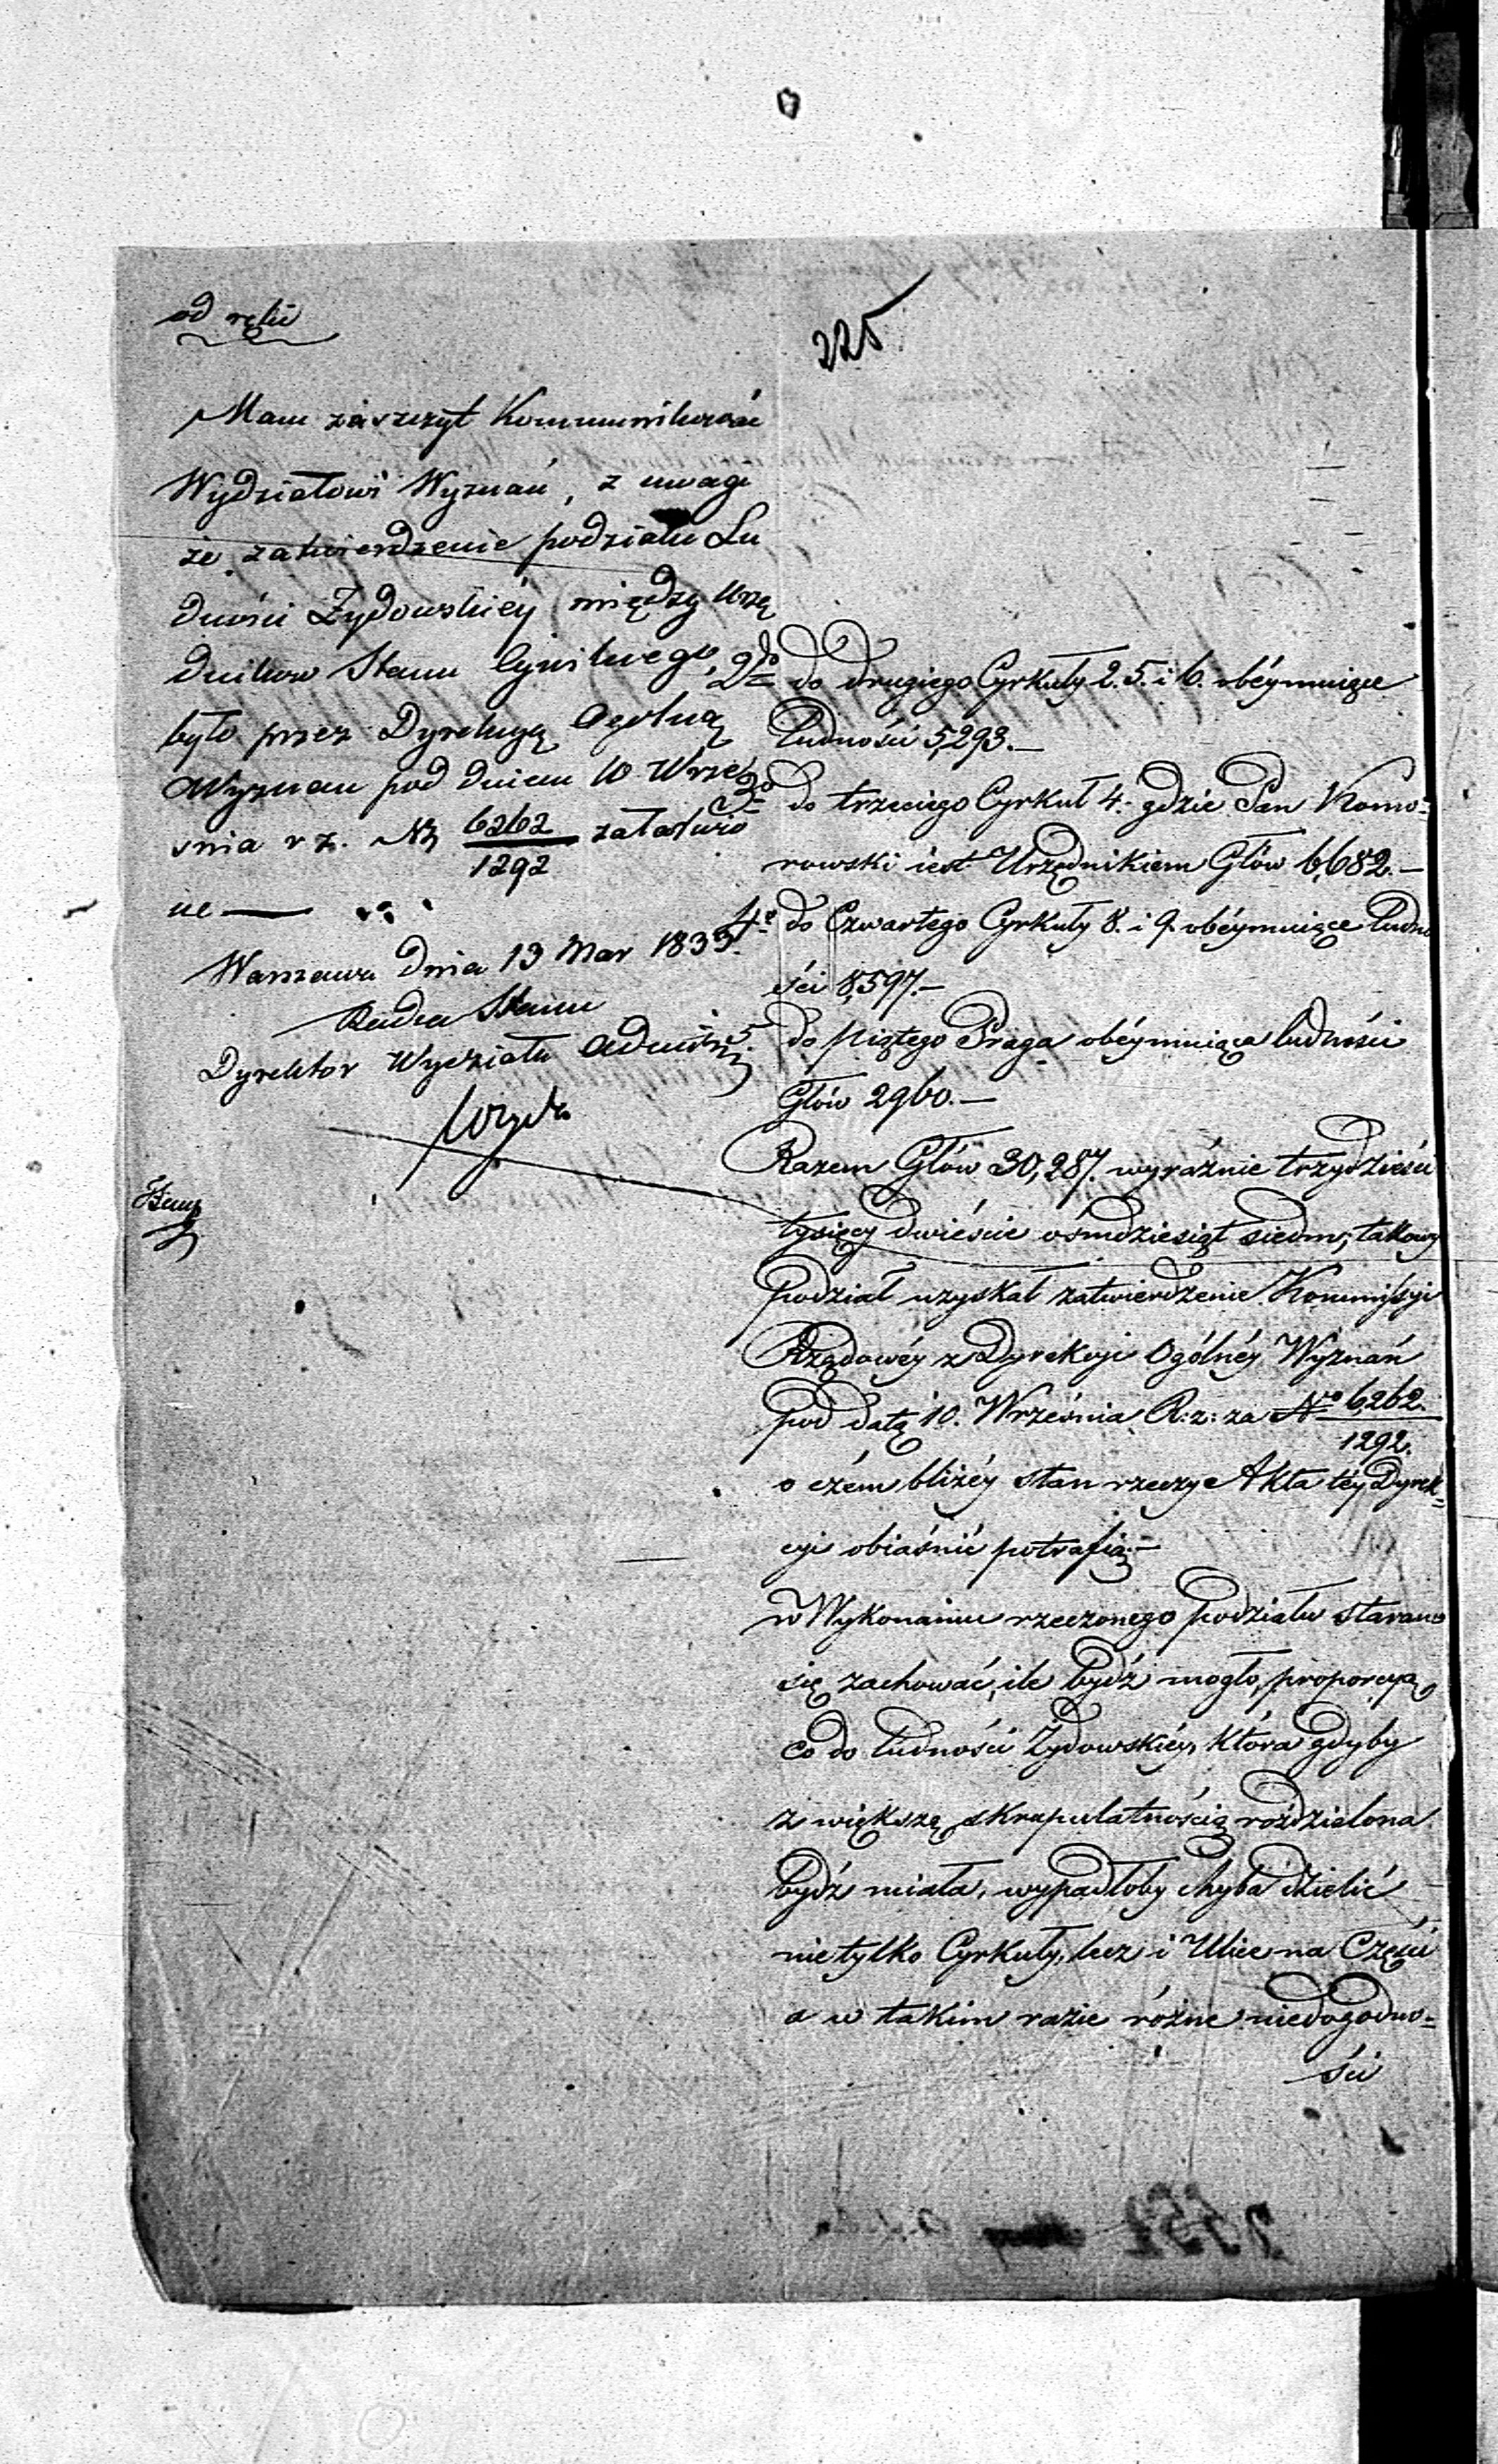 225
od ręki
Mam zaszczyt Kommunikować
Wydziałowi Wyznań, z uwagi
że zatwierdzenie podziału Lu
dności Żydowskiéy między Urzę
dników Stanu Cywilnego,
było przez Dyrekcyą Ogólną
Wyznań pod dniem 10 Wrze
śnia r z. N 6262/1292 załatwio
ne —
Warszawa dnia 13 Mar 1833.
Radca Stanu
Dyrektor Wydziału Administr
2do do drugiego Cyrkuły 2. 5. i 6. obéymuiące
ludności 5,293.—
3o do trzeciego Cyrkuł 4. gdzie Pan Komo=
rowski iest Urzędnikiem Głów 6,682.—
4e do Czwartego Cyrkuły 8. i 9. obéymuiące ludno
ści 8,597.—
5 do piątego Praga obéymuiąca ludności
Głów 2960.—
Razem Głów 30,287. wyraźnie trzydzieści
tysięcy dwieście ośmdziesiąt siedm; takowy
podział uzyskał zatwierdzenie Kommissyi
Rządowéy z Dyrekcyi Ogólnéy Wyznań
pod datą 10. Września R: z: za No 6,262./1292.
o czém bliżéy stan rzeczy Akta téy Dyrek=
cyi obiaśnić potrafią.—
w Wykonaniu rzeczonego podziału starano
się zachować, ile bydź mogło, proporcyą
co do ludności Żydowskiéy, która gdyby
z większą skrupulatnością rozdzielona
bydź miała, wypadłoby chyba dzielić
nie tylko Cyrkuły, lecz i Ulice na Części
a w takim razie różne niedogodno=
ści